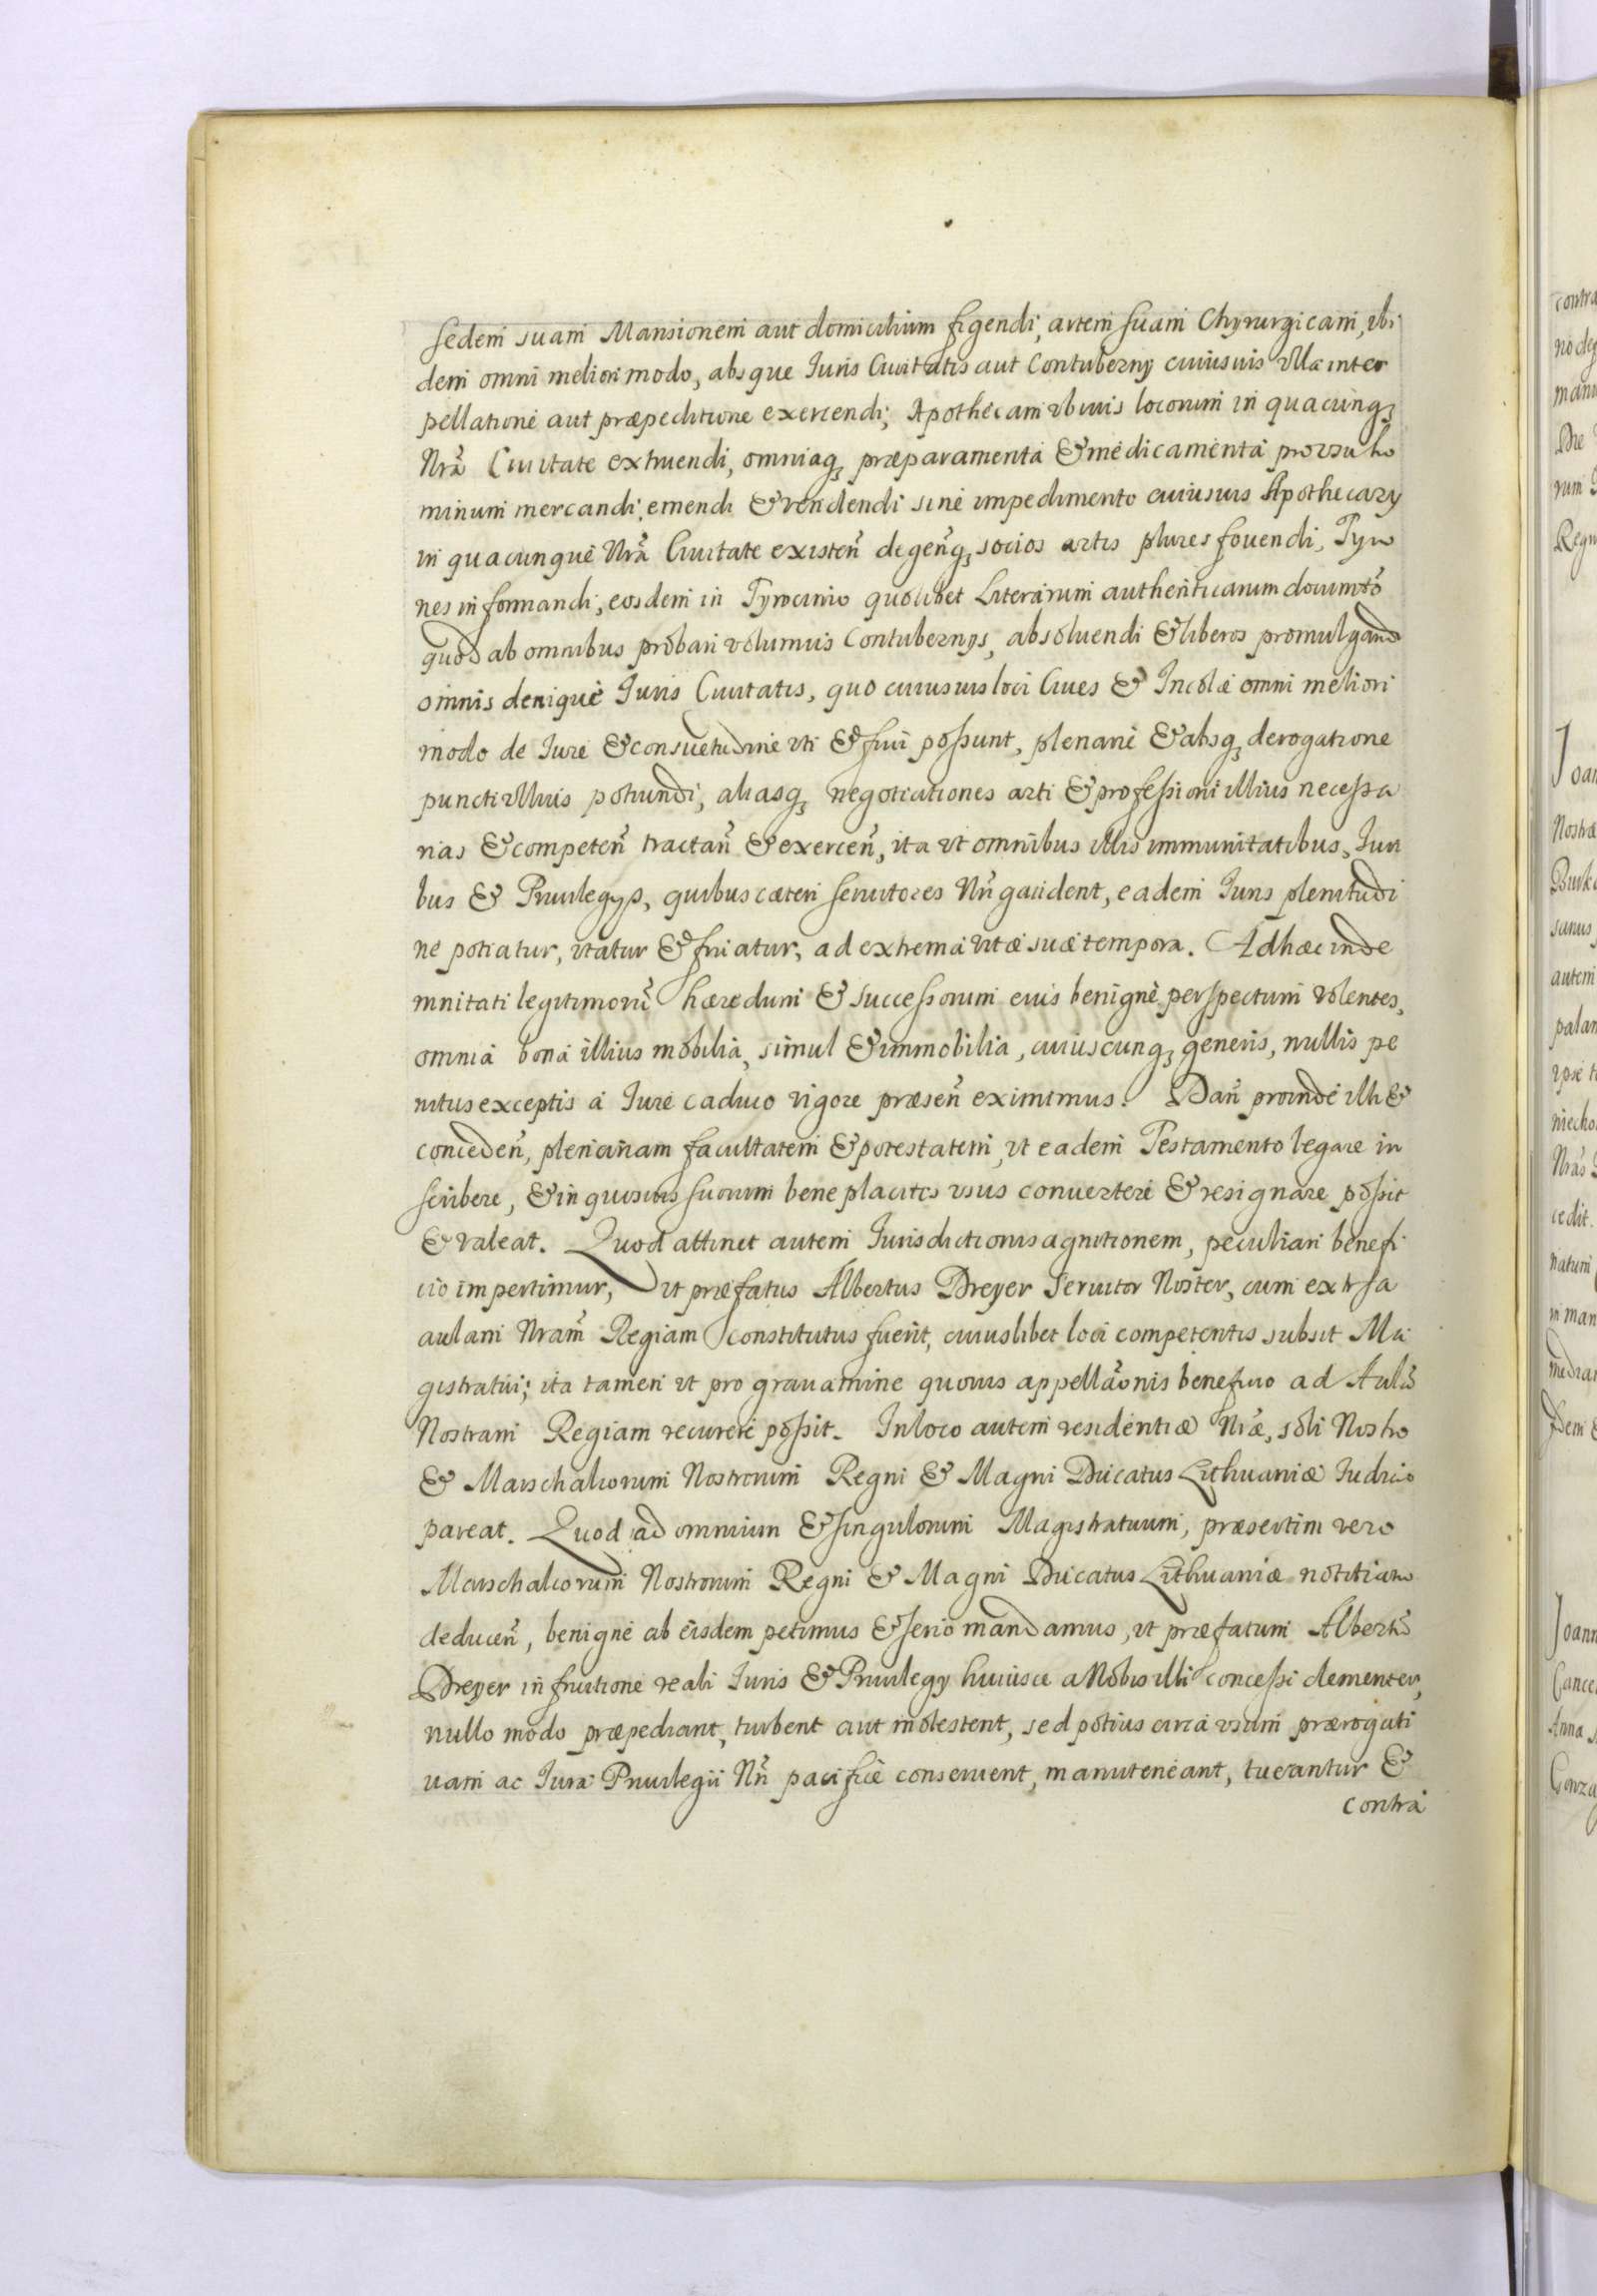 sedem suam Mansionem aut domicilium figendi, artem suam Chyrurgicam, ibi
dem omni meliori modo, absque Juris Civitatis aut Contuberny cuiusvis ulla inter
pellatione aut præpeditione exercendi; Apothecam ubivis locorum in quacunq;
Nrã Civitate extruendi, omniaq; præparamenta & medicamenta pro usu ho
minum mercandi, emendi & vendendi sine impedimento cuiusvis Apothecary
in quacunque Nrã Civitate existeñ degeñq; socios artis plures fovendi, Tyro
nes informandi, eosdem in Tyrocinio quolibet Literarum authenticarum documẽtõ
quod ab omnibus probari volumus Contubernys, absoluendi & liberos promulgand
omnis denique Juris Civitatis, quo cuiusvis loci Ciues & Incolæ omni meliori
modo de Jure & consuetudine uti & frui possunt, plenarie & absq; derogatione
puncti ullius potiundi, aliasq; negotiationes arti & professioni illius necessa
rias & competeñ tractañ & exerceñ, ita ut omnibus illis immunitatibus, Juri
bus & Priuilegys, quibus cæteri seruitores Nrĩ gaudent, eadem Juris plenitudi
ne potiatur, utatur & fruatur, ad extrema uitæ suæ tempora. Ad hæc inde
mnitati legitimorũ hæredum & successorum eius benignè perspectum volentes,
omnia bona illius mobilia, simul & immobilia, cuiuscunq; generis, nullis pe
nitus exceptis à Jure caduco uigore præseñ eximimus. Dañ proinde illi &
concedeñ, plenariam facultatem & potestatem, ut eadem Testamento legare in
scribere, & in quosuis suorum beneplacitos usus conuertere & resignare possit
& valeat. Quod attinet autem Jurisdictionis agnitionem, peculiari benefi
cio impertimur, ut præfatus Albertus Dreyer Seruitor Noster, cum extra
aulam Nram̃ Regiam constitutus fuerit, cuiuslibet loci competentis subsit Ma
gistratui; ita tamen ut pro grauamine quouis appellãonis beneficio ad Aulã
Nostram Regiam recurere possit. In loco autem residentiæ Nræ, soli Nostro
& Marschalcorum Nostrorum Regni & Magni Ducatus Lithuaniæ Judicio
pareat. Quod ad omnium & singulorum Magistratuum, præsertim vero
Marschalcorum Nostrorum Regni & Magni Ducatus Lithuaniæ notitiam
deduceñ, benignè ab eisdem petimus & serio mandamus, ut præfatum Albertũ
Dreyer in fruitione reali Juris & Priuilegy huiusce a Nobis illi concessi clementer,
nullo modo præpediant, turbent aut molestent, sed potius circa usum prærogati
uam ac Jura Priuilegii Nrĩ pacificè conseruent, manuteneant, tueantur &
contra